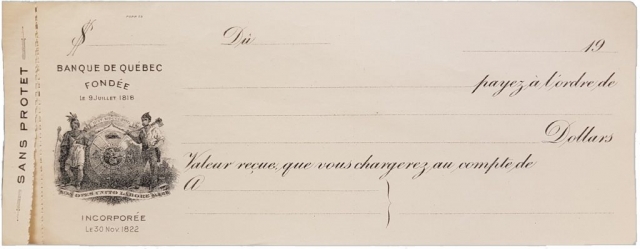 SANS PROTET
$ Dû 19
BANQUE DE QUÉBEC
FONDÉE
LE 9 JUILLET 1818
payez à l'ordre de
Dollars
Valeur reçue, que vous chargerez au compte de
A
INCORPORÉE
LE 30 NOV. 1822